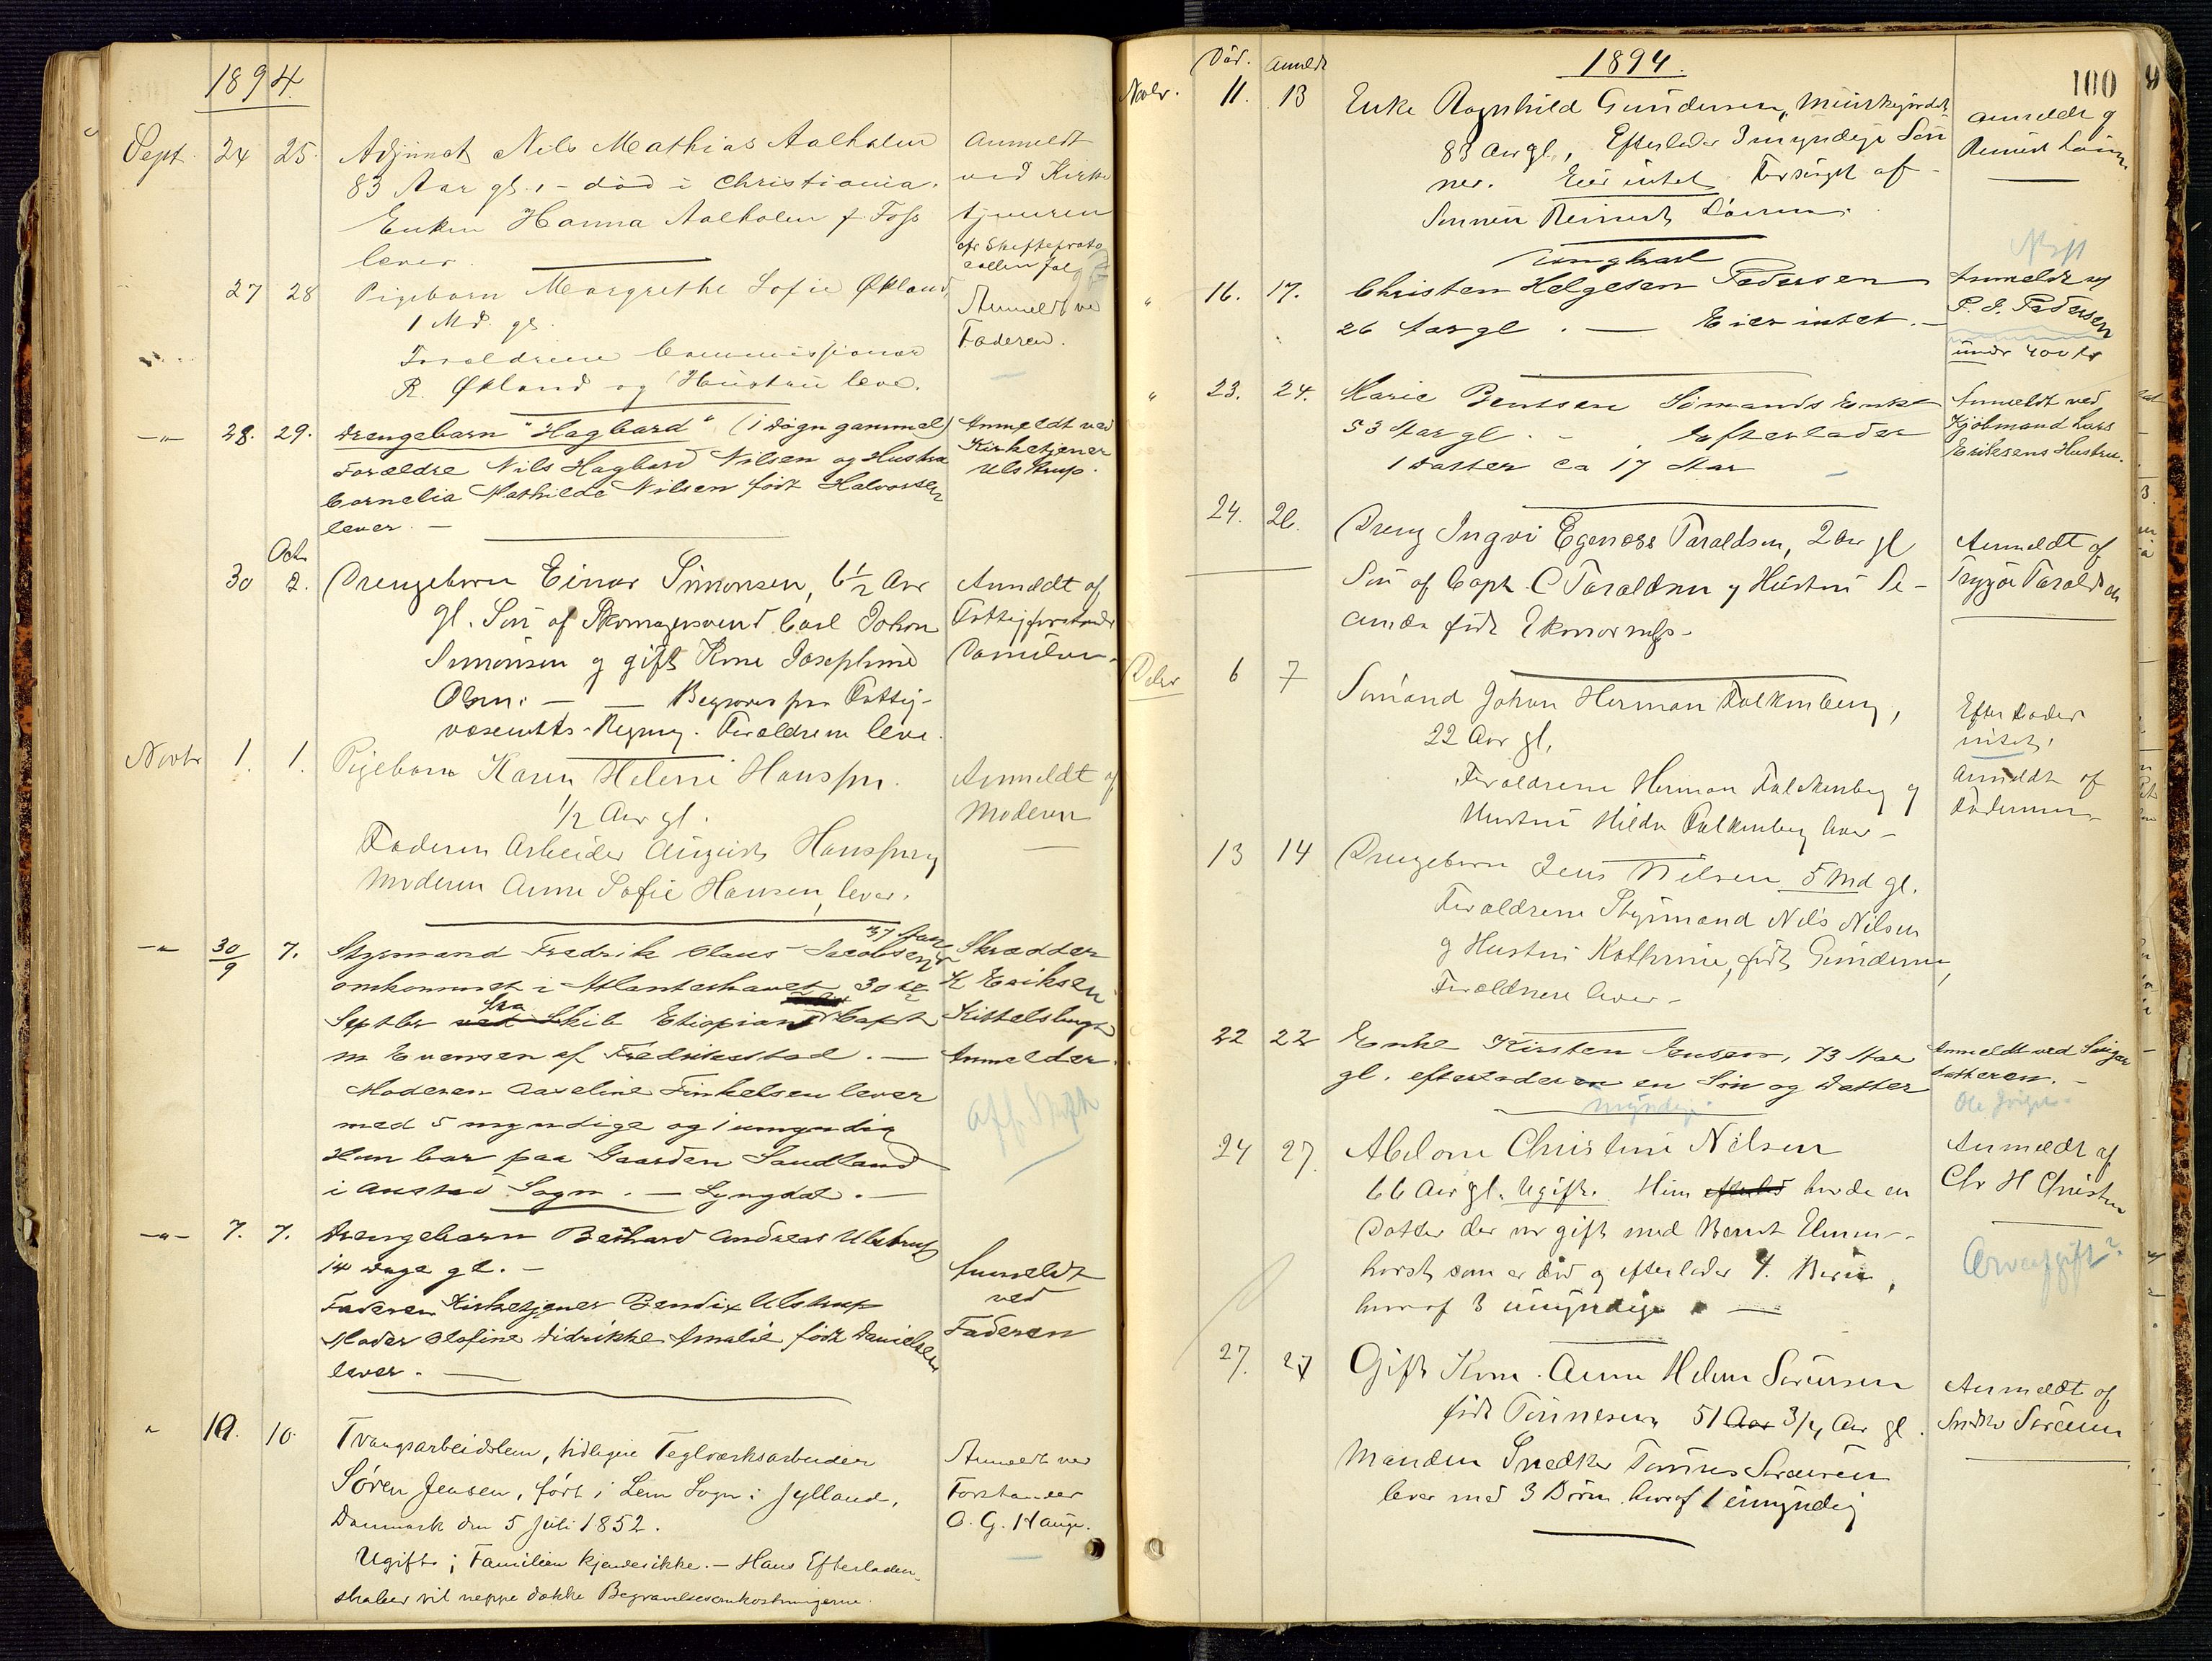 1894
Sept. 24 25. Adjunct Nils Mathias Aalholm
83 Aar gl. - død i Christiania.
Enken Hanna Aalholm f. Foss
lever.
Anmeldt
ved Kirke
tjeneren
27 28 Pigebarn Margrethe Sofie Økland,
1 Md. gl.
Forældrene Commissionær
R. Økland og Hustru leve.
Anmeldt ved
Faderen.
-"- 28. 29. Drengebarn "Hagbard" (1 Døgn gammel)
Forældre Nils Hagbard Nilsen og Hustru
Cornelia Mathilde Nilsen født Halvorsen
lever. -
Anmeldt ved
Kirketjener
Ulstrup.
Oct
30 2. Drengebarn Einar Simonsen, 6½ Aar
gl. Søn af Skomagersvend Carl Johan
Simonsen og gift Kone Josephine
Olsen. - Begraves paa Fattig-
væsenets Regning. Forældrene leve.
Anmeldt af
Fattigforstander
Danielsen.
Novbr 1. 1. Pigebarn Karen Helene Hanssen.
1/2 Aar gl.
Faderen Arbeider August Hanssen og
Moderen Anne Sofie Hansen, lever.
Anmeldt af
Moderen
-"- 30/9 7. Styrmand Fredrik Olaus Jacobsen 37 Aar
omkommet i Atlanterhavet 30te
Septbr ved fra Skib Etiopian Capt
M Evensen af Fredriksstad. -
Moderen Aaseline Finkelsen lever
med 5 myndige og 1 umyndig
Hun bor paa Gaarden Sandland
i Austad Sogn. - Lyngdal. -
Skrædder
K Eriksen
Kittelsbugt
Anmelder.
-"- 7. 7. Drengebarn Bernhard Andreas Ulstrup
14 Dage gl. -
Faderen Kirketjener Bendix Ulstrup
Moder Olofine Didrikke Amalie født Danielsen
lever. -
Anmeldt
ved
Faderen
" 10. 10. Tvangsarbeidslem, tidligere Teglværksarbeider
Søren Jensen, født i Lem Sogn i Jylland,
Danmark den 5 Juli 1852.
Ugift; Familien kjendes ikke. - Hans Efterladen-
skaber vil neppe dække Begravelsesomkostningerne.
Anmeldt ved
Forstander
O. G. Hauge.
Død. Anmeldt 1894. 100
Novbr. 11. 13 Enke Ragnhild Gundersen,
83 Aar gl., Efterlader 3 myndige Søn
ner. Eier intet Forsørget af
Sønnen Reinert
anmeldt af
Reinert
Ungkarl
" 16. 17. Christen Helgesen Pedersen
26 Aar gl. - Eier intet. -
Anmeldt af
P. J. Pedersen
under 400 kr
" 23. 24. Marie Bentsen Sømands Enke
53 Aar gl. - Efterlader
1 Datter ca 17 Aar
Anmeldt ved
Kjøbmand Lars
Eriksens Hustru.
24. 26. Dreng Ingvi Egenæss Taraldsen, 2 Aar gl
Søn af Capt. C Taraldsen og Hustru
Amanda født
Anmeldt af
Trygve Taraldsen
Decbr 6 7 Sømand Johan Herman Falkenberg,
22 Aar gl.
Forældrene Herman Falckenberg og
Hustru Hilda Falkenberg lever -
Efterlader
intet.
Anmeldt af
Faderen
13 14 Drengebarn Jens Nilsen 5 Md gl.
Forældrene Styrmand Nils Nilsen
og Hustru Kathrine, født Gundersen,
Forældrene lever -
22 22 Enke Kirsten Jensen, 73 Aar
gl. efterlader en en Søn og Datter
myndige
Anmeldt ved Sviger
datteren. -
24 27 Abelone Christine Nilsen
66 Aar gl. Ugift. Hun havde en
Datter der var gift med Bernt Elmen-
horst som er død og efterlader 4. Børn,
hvoraf 3 umyndige. -
Anmeldt af
Chr H Christensen
Arveafgift?
27. 27 Gift Kone. Anne Helene Sørensen
født Tønnesen, 51 Aar 3/4 Aar gl.
Manden Snedker Tønnes Sørensen
lever med 3 Børn hvoraf 1 umyndig
Anmeldt af
Snedker Sørensen